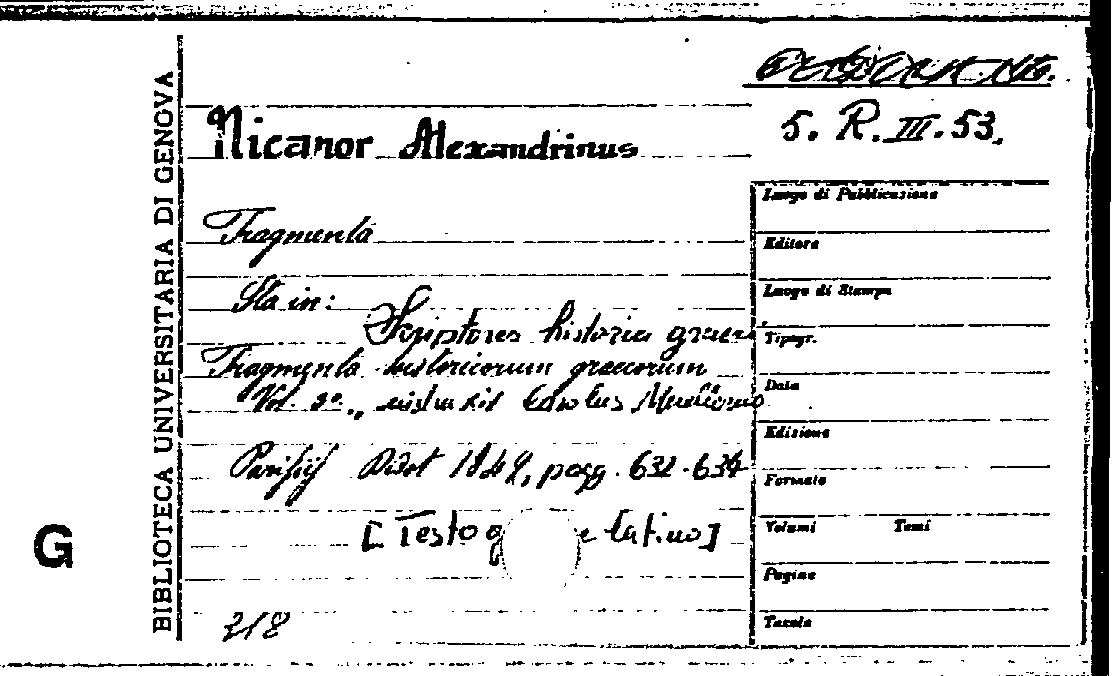 5. R. III. 53.
Nicanor Alexandrinus
Fragmenta
Sta in:
Scriptores historia graeci
Fragmenta historicorum graecorum
Vol. 3º, Carolus
Parisijs Didot 1849, pagg. 632-634
[Testo g e latino]
218
G
BIBLIOTECA UNIVERSITARIA DI GENOVA
Luogo di Pubblicazione
Editore
Luogo di Stampa
Tipogr.
Data
Edizione
Formato
Volumi Tomi
Pagine
Tavole